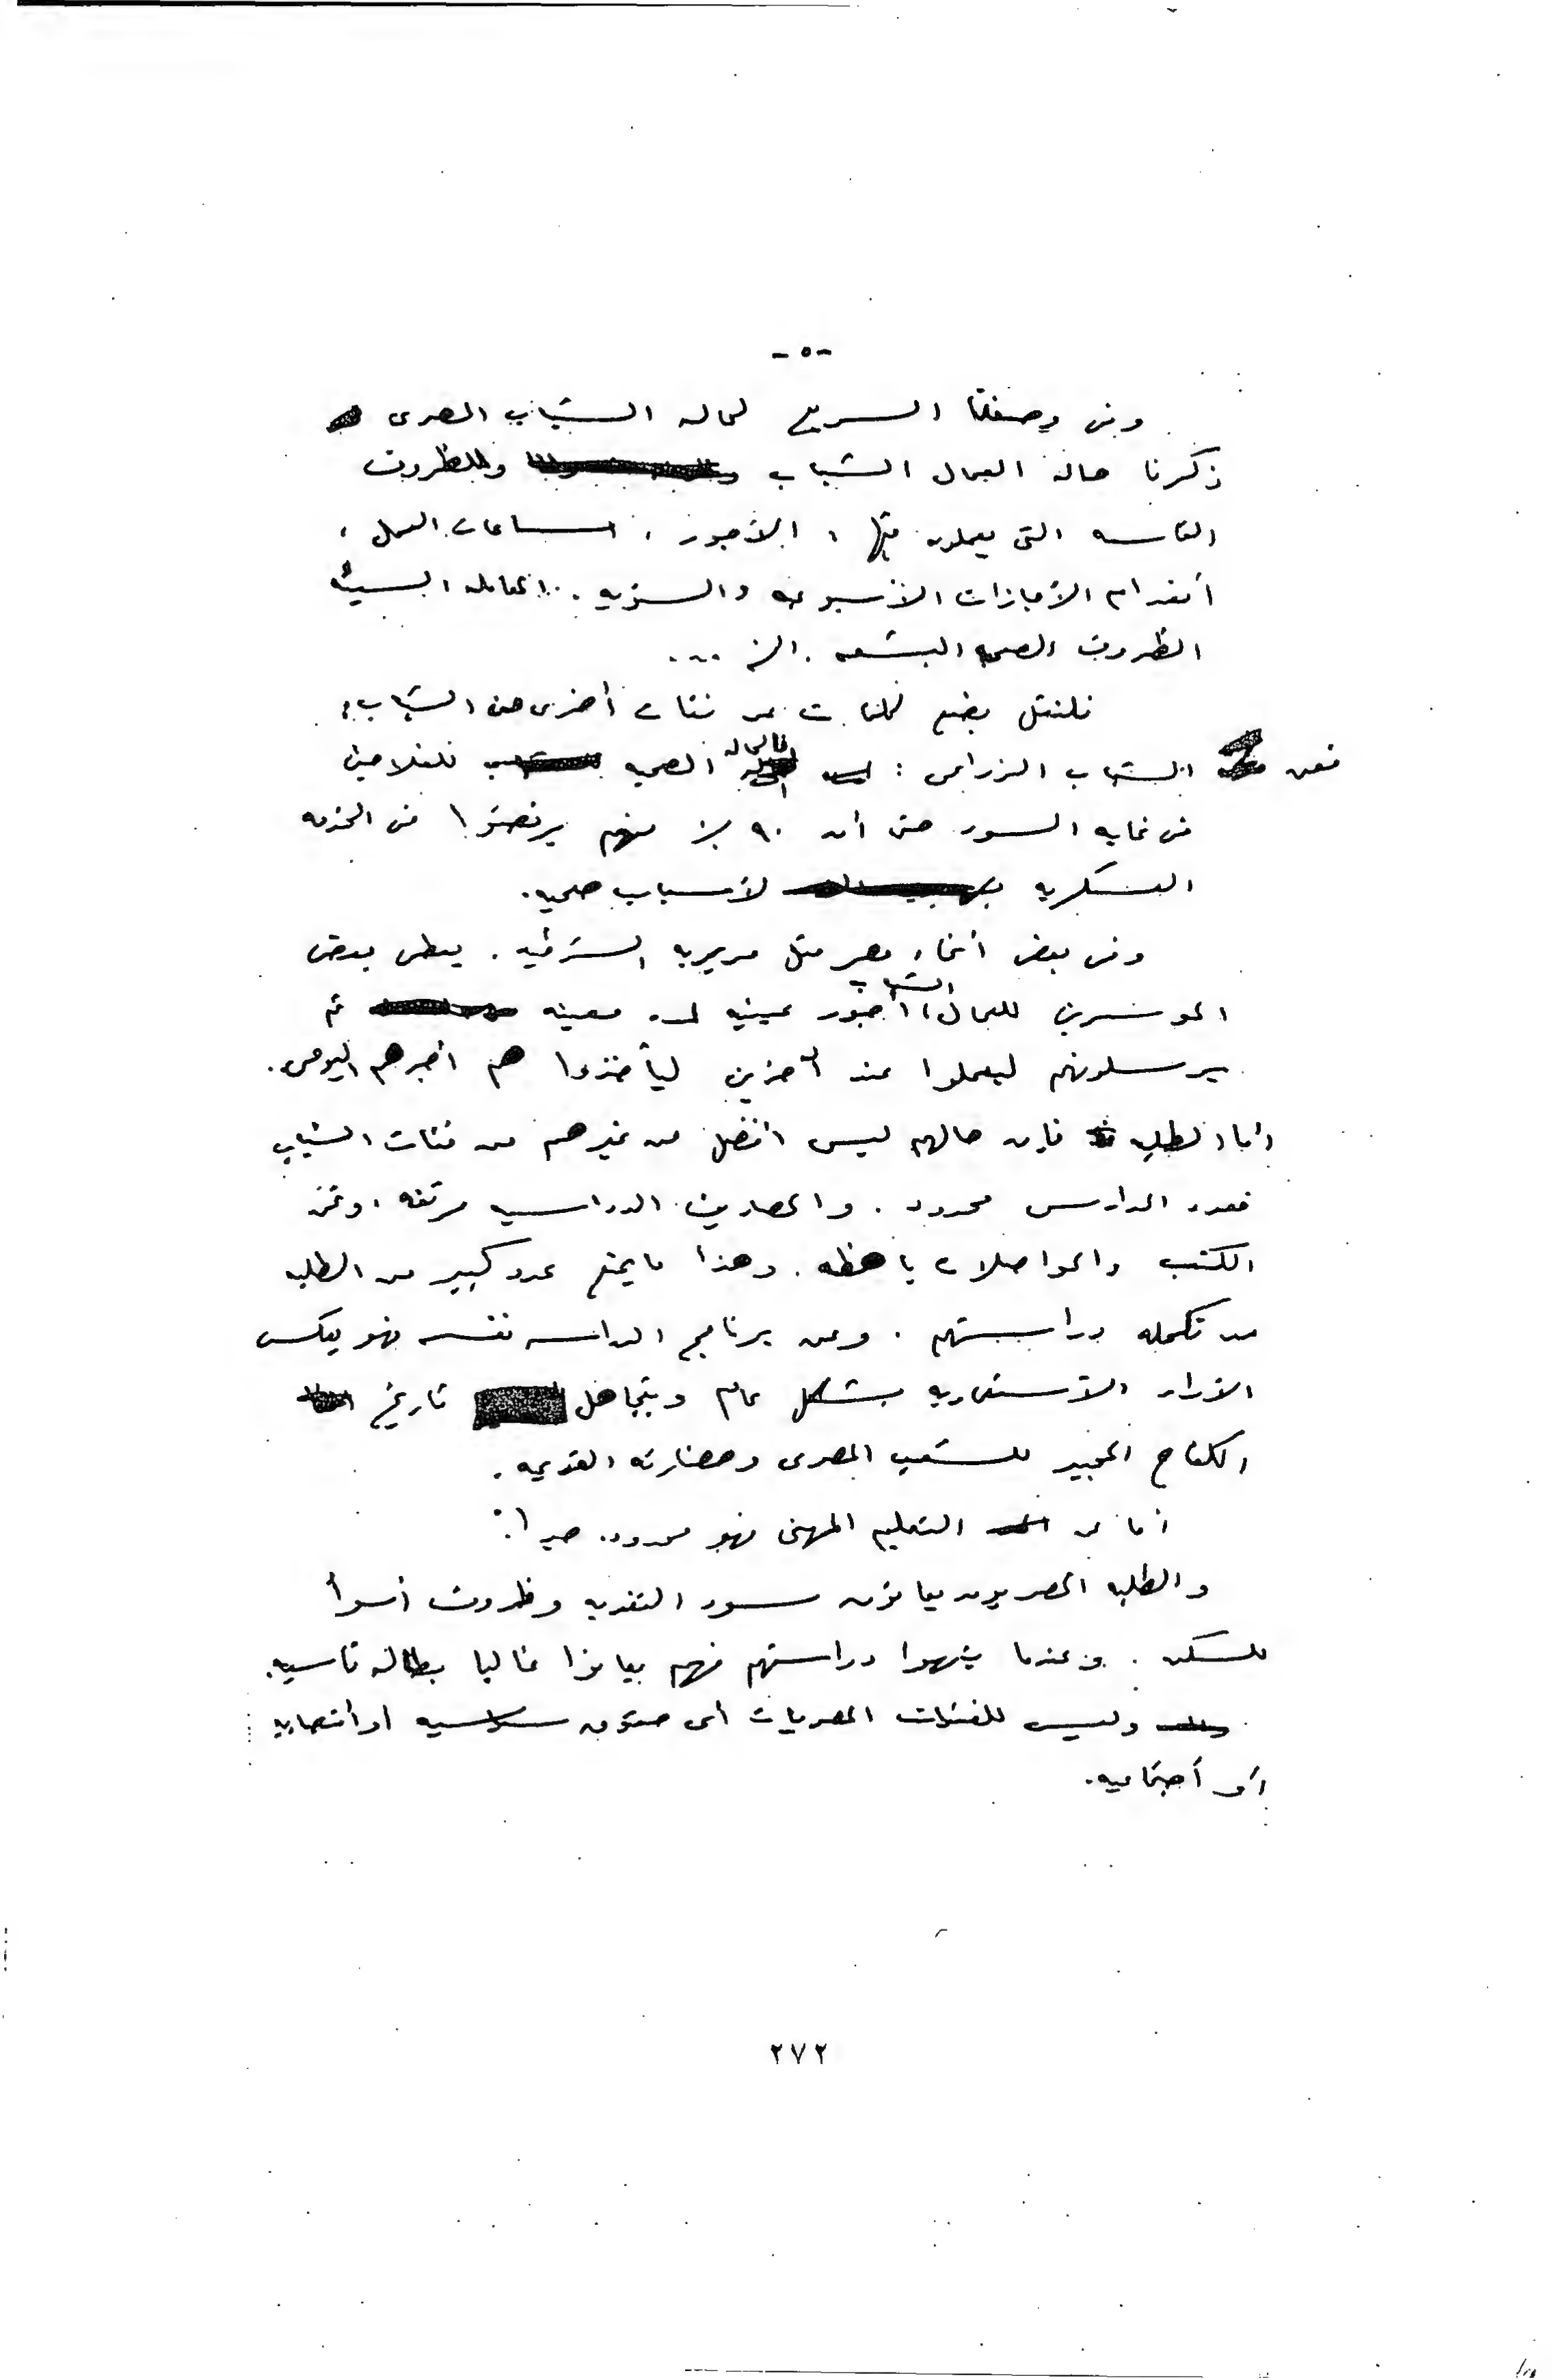 -٥-
وفى وصفنا السريع لحاله الشباب المصرى
ذكرنا حالة العمال الشباب وللظروف
القاسيه التى يعملون فيها ، الأجور ، ساعات العمل ،
أنعدام الأجازات الأسبوعيه والسنويه . المعامله السيئه
الظروف الصحيه البشعه . الخ ...
فلننتقل بضع كلمات عن فئات أخرى من الشباب ،
فعن الشباب الزراعى : فالحاله الصحيه للفلاحين
فى غايه السوء حتى أن ٩٠ ٪ منهم يرفضوا فى الخدمه
العسكريه لأسباب صحيه .
وفى بعض أنحاء مصر مثل مديريه الشرقيه . يعطى بعض
الموسرين للعمال الشباب أجور عينيه لمده معينه ثم
يرسلونهم ليعملوا عند آخرين ليأخذوا هم أجرهم اليومى .
أما الطلبه فإن حالهم ليس أفضل من غيرهم من فئات الشباب
فعدد المدارس محدود . والمصاريف الدراسيه مرتفعه ، وثمن
الكتب والمواصلات باهظه . وهذا ما يمنع عدد كبير من الطلبه
من تكمله دراستهم . وعن برنامج الدراسه نفسه فهو يعكس
الأراء الأستعماريه بشكل عام ويتجاهل تاريخ
الكفاح المجيد للشعب المصرى وحضارته القديمه .
أما عن التعليم المهنى فهو محدود جدا .
والطلبه المصريون يعانون سوء التغذيه وظروف أسوأ
للسكن . وعندما ينهوا دراستهم فهم يعانوا غالبا بطاله قاسيه .
وليس للفتيات المصريات أى حقوق سياسيه أو أقتصاديه
أو أجتماعيه .
٢٧٢